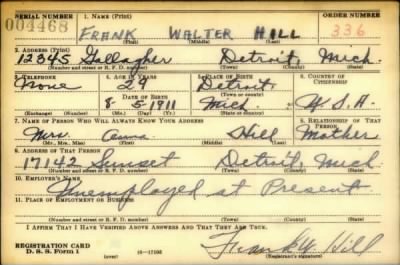 SERIAL NUMBER 1. NAME (Print) ORDER NUMBER
004468 FRANK WALTER HILL 336
(First) (Middle) (Last)
2. ADDRESS (Print)
12345 Gallagher Detroit, Mich.
(Number and street or R. F. D. number) (Town) (County) (State)
3. TELEPHONE 4. AGE IN YEARS 5. PLACE OF BIRTH 6. COUNTRY OF CITIZENSHIP
None 29 Detroit
DATE OF BIRTH
8 5-1911 Mich. U.S.A.
(Exchange) (Number) (Mo.) (Day) (Yr.) (State or country)
7. NAME OF PERSON WHO WILL ALWAYS KNOW YOUR ADDRESS 8. RELATIONSHIP OF THAT PERSON
Mrs. Anna Hill Mother
(Mr., Mrs., Miss) (First) (Middle) (Last)
9. ADDRESS OF THAT PERSON
17142 Sunset Detroit, Mich
(Number and street or R. F. D. number) (Town) (County) (State)
10. EMPLOYER'S NAME
Unemployed at Present
11. PLACE OF EMPLOYMENT OR BUSINESS
(Number and street or R. F. D. number) (Town) (County) (State)
I AFFIRM THAT I HAVE VERIFIED ABOVE ANSWERS AND THAT THEY ARE TRUE.
REGISTRATION CARD
D. S. S. Form 1 16-17105 Frank W Hill
(Registrant's signature)